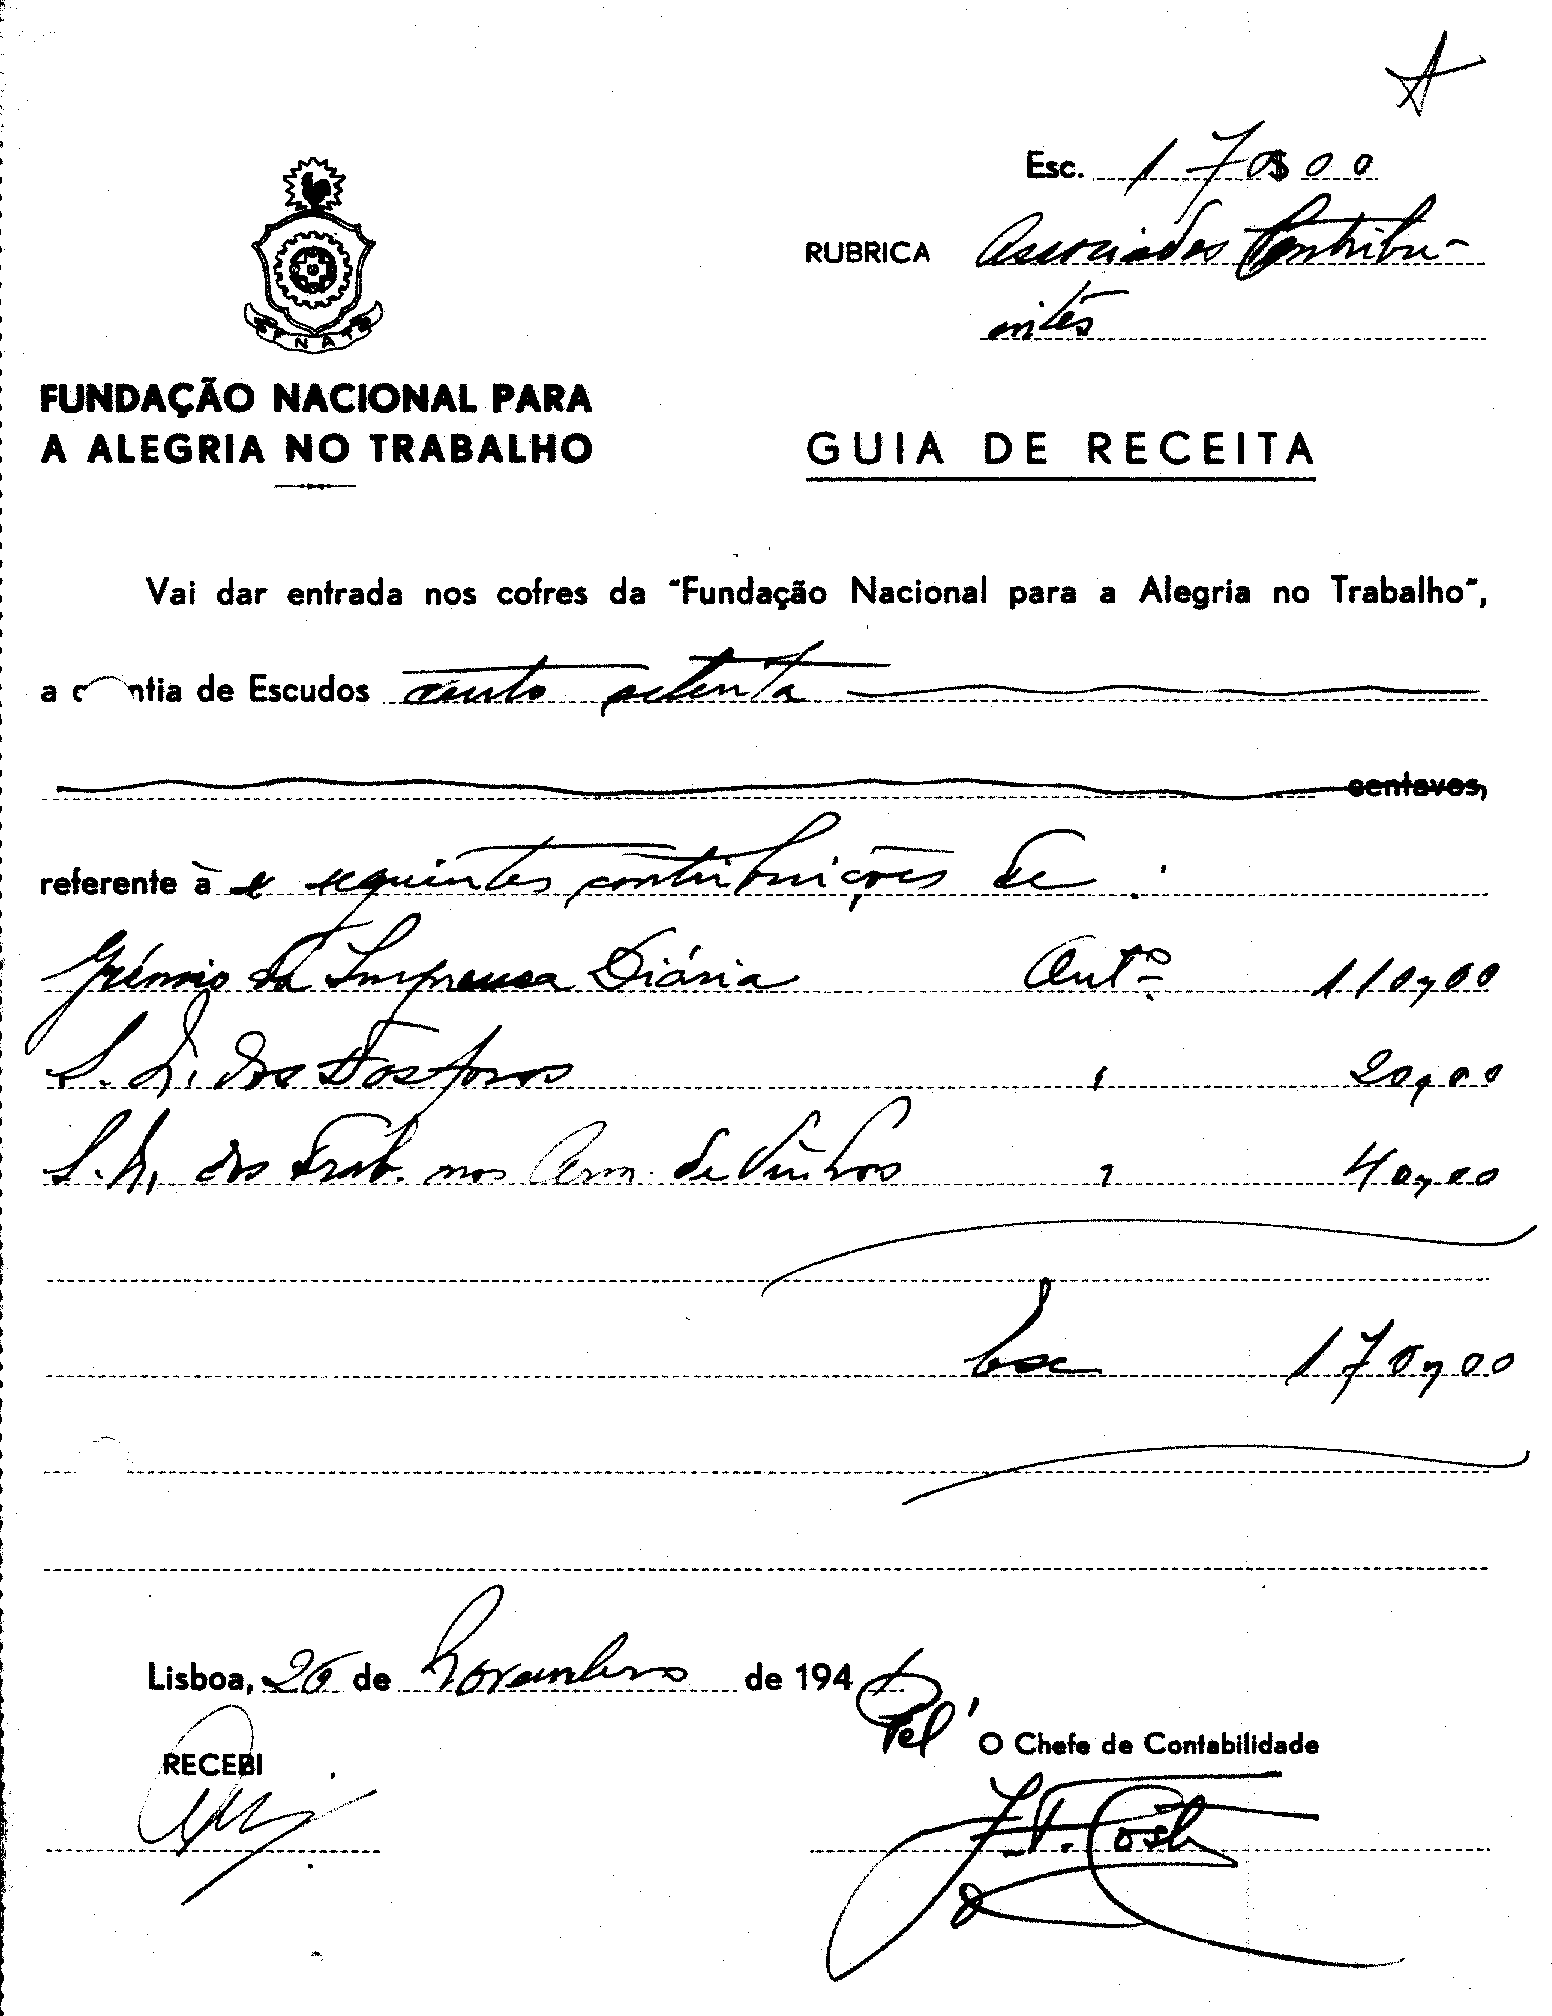 Esc. 170$00
RUBRICA Associados Contribu-
intes
FNAT
FUNDAÇÃO NACIONAL PARA
A ALEGRIA NO TRABALHO
GUIA DE RECEITA
Vai dar entrada nos cofres da "Fundação Nacional para a Alegria no Trabalho",
a quantia de Escudos cento setenta
centavos,
referente à seguintes contribuições de :
Grémio da Imprensa Diária Outº 110,00
S. N. dos Fosforos " 20,00
S. N. dos Trab. nos Arm. de Vinhos " 40,00
Esc 170,00
Lisboa, 26 de Novembro de 194
Pel'
O Chefe de Contabilidade
RECEBI
J. T. Costa